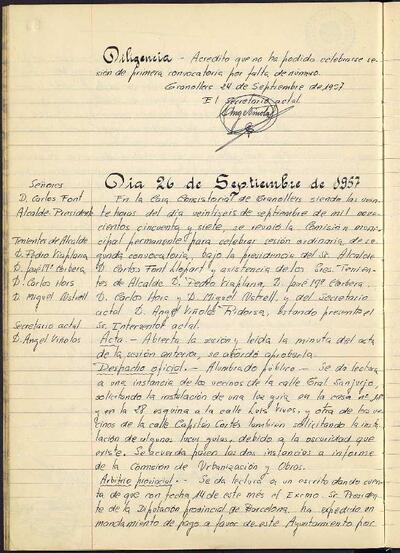 Diligencia - Acredito que no ha podido celebrarse se-
sión de primera convocatoria por falta de número.
Granollers 24 de Septiembre de 1957
El Secretario actal.
Día 26 de Septiembre de 1957
Señores
D. Carlos Font
Alcalde-Presidente
Tenientes de Alcalde
D. Pedro Viaplana
D. José Mª Corbera
D. Carlos Hois
D. Miguel Nistrell
Secretario actal.
D. Angel Viñolas
En la Casa Consistorial de Granollers siendo las vein-
te horas del día veintiseis de septiembre de mil nove-
cientos cincuenta y siete, se reunió la Comisión muni-
cipal permanente para celebrar sesión ordinaria de se-
gunda convocatoria, bajo la presidencia del Sr. Alcalde
D. Carlos Font Llopart y asistencia de los Sres. Tenien-
tes de Alcalde D. Pedro Viaplana, D. José Mª Corbera,
D. Carlos Hois y D. Miguel Nistrell, y del Secretario
actal D. Angel Viñolas Ridorsa, estando presente el
Sr. Interventor actal.
Acta.- Abierta la sesión y leída la minuta del acta
de la sesión anterior, se acordó aprobarla.
Despacho oficial.- Alumbrado público - Se da lectura
a una instancia de los vecinos de la calle Gral Sanjurjo,
solicitando la instalación de una luz guía en la casa nº 18
y en la 28 esquina a la calle Luis Vives, y otra de los ve-
cinos de la calle Capitán Cortés tambien solicitando la insta-
lación de algunas luces guías, debido a la oscuridad que
existe. Se acuerda pasen las dos instancias a informe
de la Comisión de Urbanización y Obras.
Arbitrio provincial.- Se da lectura a un escrito dando cuen-
ta de que con fecha 14 de este mes el Excmo. Sr. Presiden-
te de la Diputación provincial de Barcelona, ha expedido en
mandamiento de pago a favor de este Ayuntamiento por